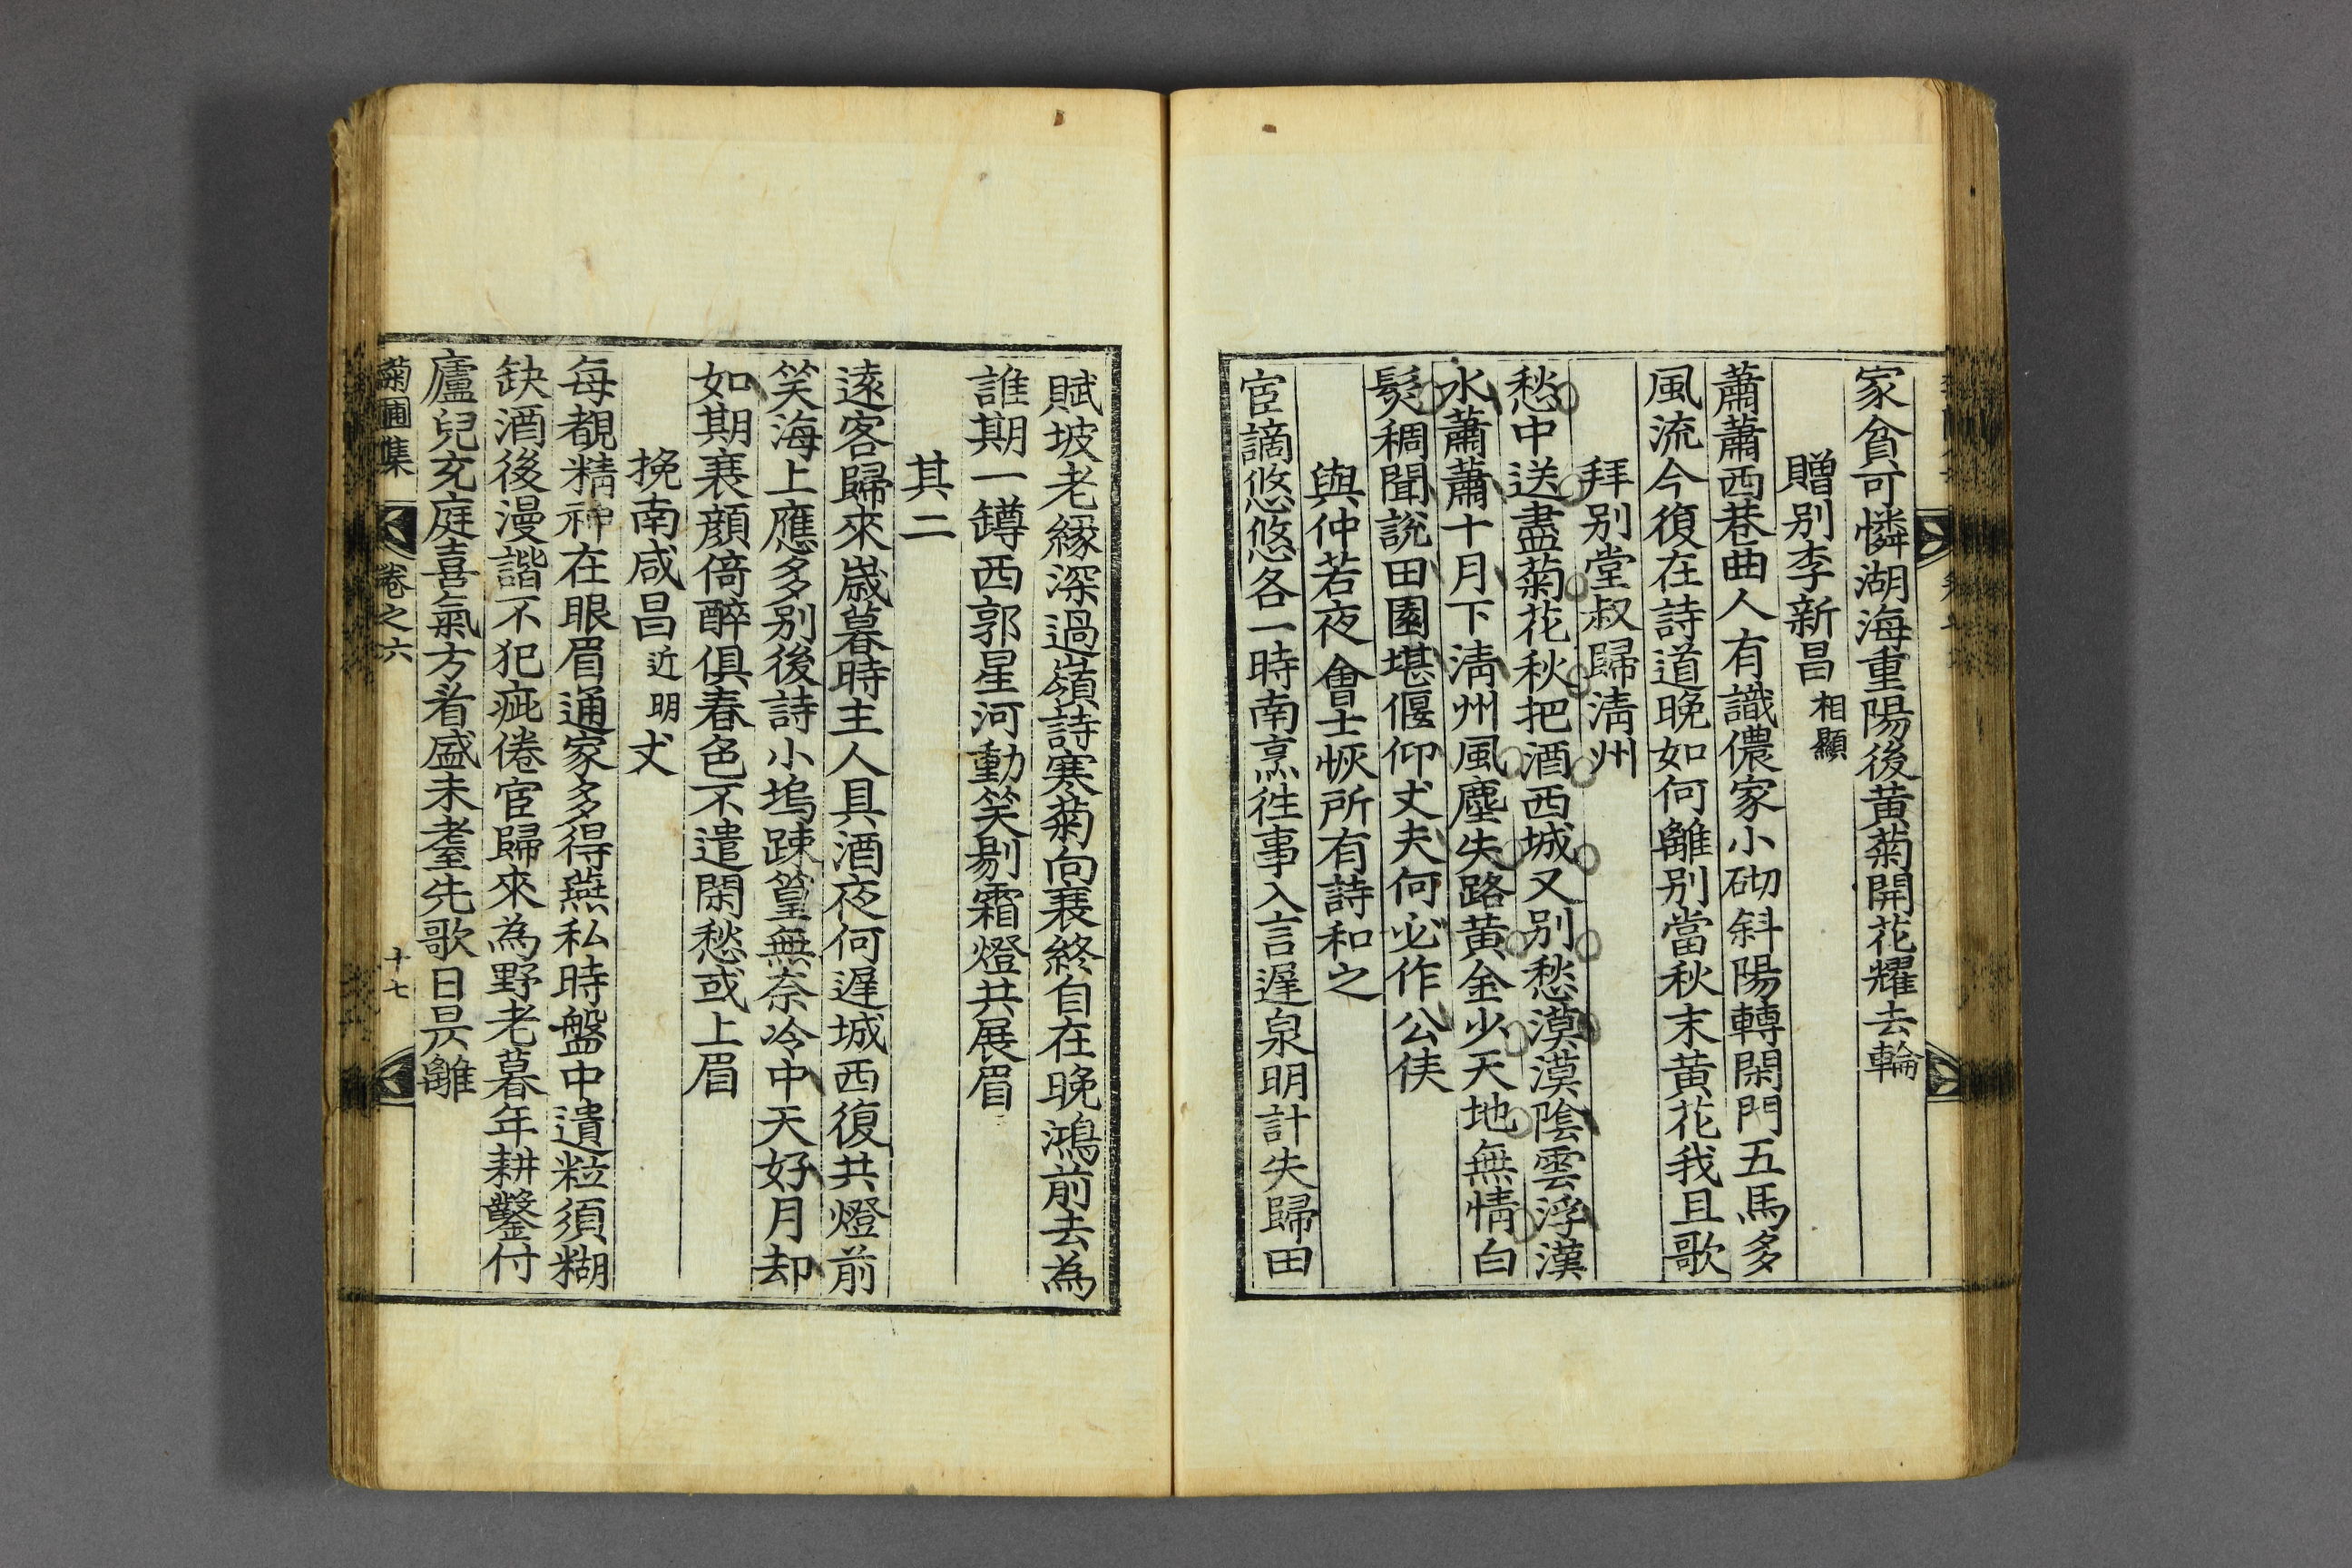 家貧可憐湖海重陽後黃菊開花耀去輪
贈别李新昌相顯
蕭蕭西巷曲人有識儂家小砌斜陽轉閑門五馬多
風流今復在詩道晚如何離别當秋末黃花我且歌
拜别堂叔歸淸州
愁中送盡菊花秋把酒西城又别愁漠漠陰雲浮漢
水蕭蕭十月下淸州風塵失路黃金少天地無情白
髮稠聞說田園堪偃仰丈夫何必作公侯
與仲若夜會士恢所有詩和之
宦謫悠悠各一時南烹徃事入言遲泉明計失歸田
賦坡老緣深過嶺詩寒菊向衰終自在晚鴻前去為
誰期一罇西郭星河動笑剔霜燈共展眉
其二
遠客歸來歲暮時主人具酒夜何遲城西復共燈前
笑海上應多别後詩小塢踈篁無奈冷中天好月却
如期衰顔倚醉俱春色不遣閑愁或上眉
挽南咸昌近明丈
每覩精神在眼眉通家多得燕私時盤中遺粒須糊
缺酒後漫諧不犯疵倦宦歸來為野老暮年耕鑿付
廬兒充庭喜氣方看盛未耋先歌日昃離
菊圃集 卷之六 十七